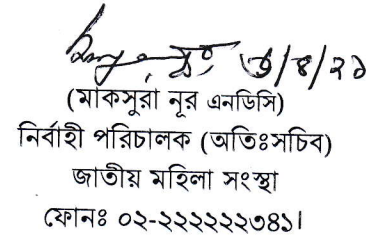 ৩/৪/২১
(মাকসুরা নূর এনডিসি)
নির্বাহী পরিচালক (অতিঃসচিব)
জাতীয় মহিলা সংস্থা
ফোনঃ ০২-২২২২২২৩৪১।